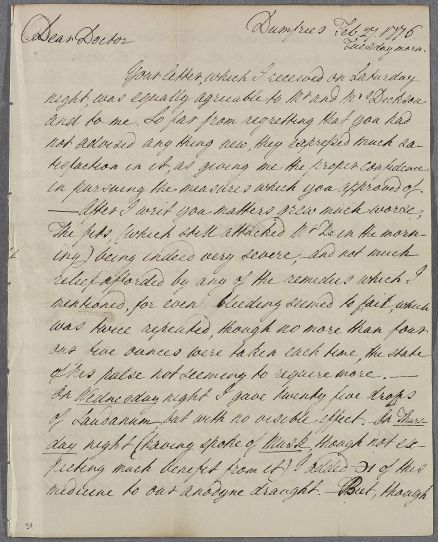 Dumfries Feb 27 1776
Tuesday morn.
Dear Doctor
Your letter which I received on Saturday
night, was equally agreeable to Mr and Mrs Dickson
and to me. So far from regretting that you had
not advised any thing new, they expressed much sa-
tisfaction in it, as giving me the proper confidence
in pursuing the measures which you approved of.
— After I writ you matters grew much worse,
The fits, (which still attacked Mr D. in the morn-
ing) being indeed very severe, and not much
relief afforded by any of the remedies which I
mentioned, for even bleeding seemed to fail, which
was twice repeated, though no more than four
our five ounces were taken each time, the state
of his pulse not seeming to require more. —
On Wednesday night I gave twenty five drops
of Laudanum but with no visible effect. On Thurs-
day night (having spoke of Musk, though not ex-
pecting much benefit from it) I added ℈1 of this
medicine to our anodyne draught. — But, though